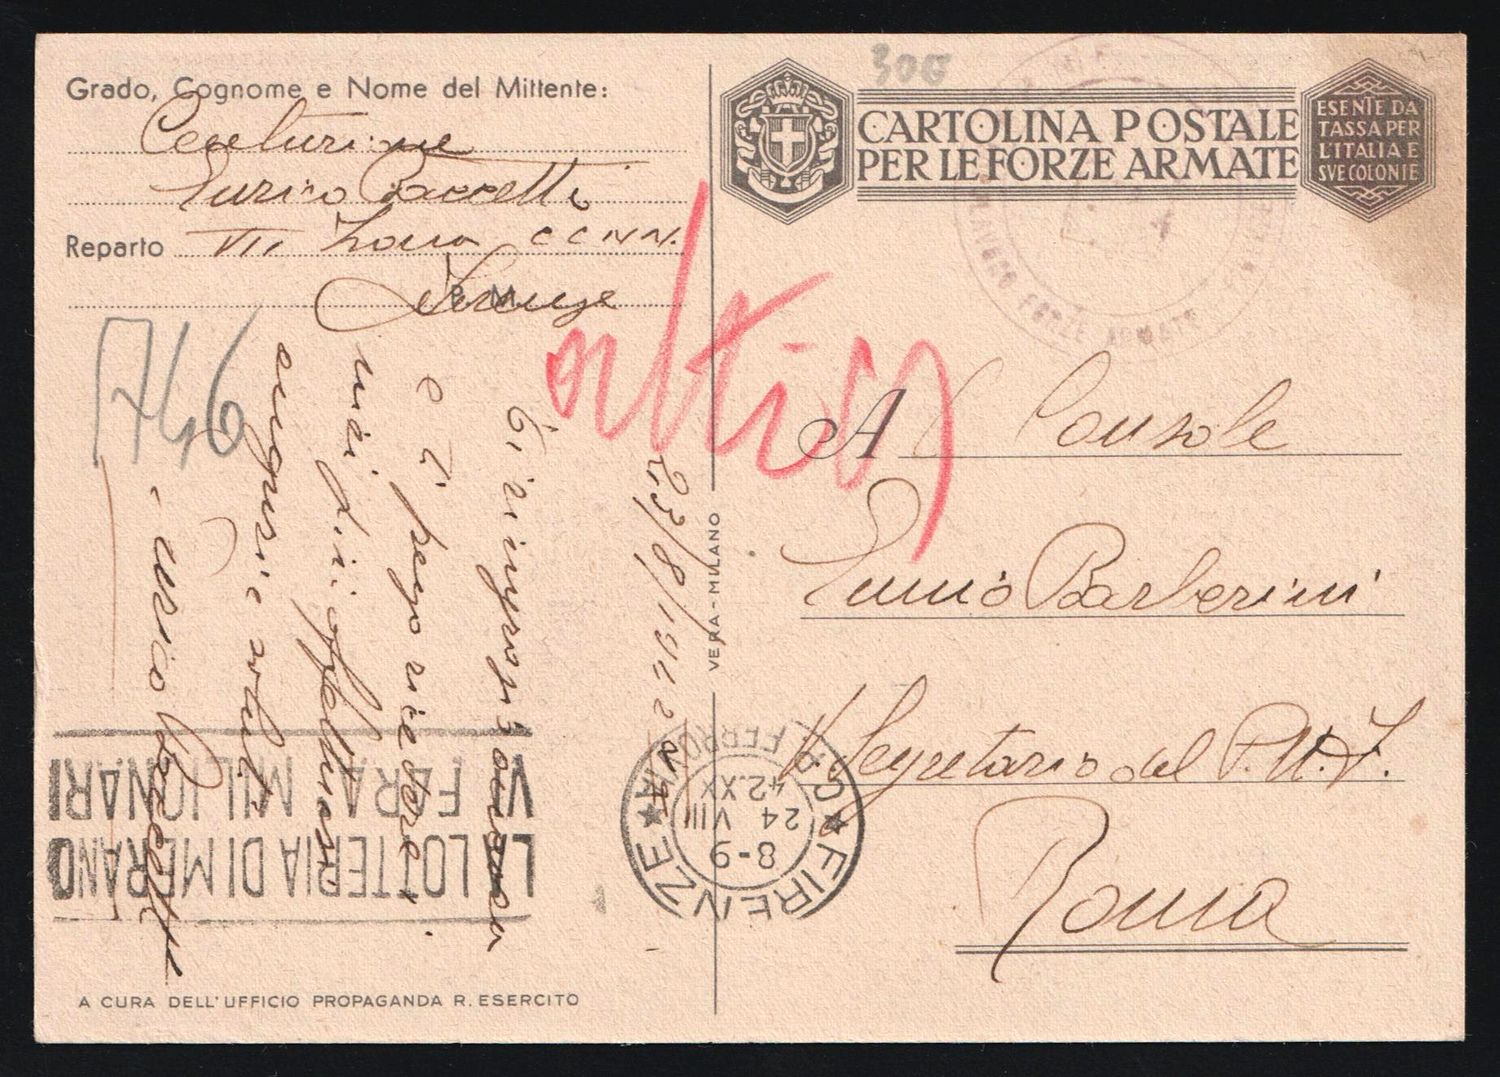 Grado, Cognome e Nome del Mittente:
Centurione
Enrico
Reparto VII Zona CCNN.
P. M.
Firenze
746
300
CARTOLINA POSTALE
PER LE FORZE ARMATE
ESENTE DA
TASSA PER
L'ITALIA E
SVE COLONIE
FORZE ARMATE
A Console
Ennio Barberini
V. Segretario del P.N.F.
Roma
23/8/1942
Ti ringrazio ancora
e ti prego ricevere i
miei più affettuosi
auguri e saluti
Enrico
VERA - MILANO
FIRENZE
FERROVIA
8-9
24 VIII
42.XX
LA LOTTERIA DI MERANO
VI FARA' MILIONARI
A CURA DELL'UFFICIO PROPAGANDA R. ESERCITO